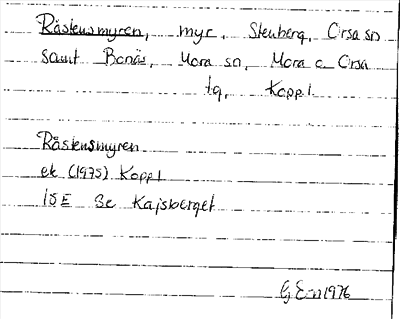 Råstensmyren, myr, Stenberg, Orsa sn
samt Bonäs, Mora sn, Mora o Orsa
tg, Koppl.
Råstensmyren
ek (1975) Koppl
15E 3c Kajsberget
GE-n 1976